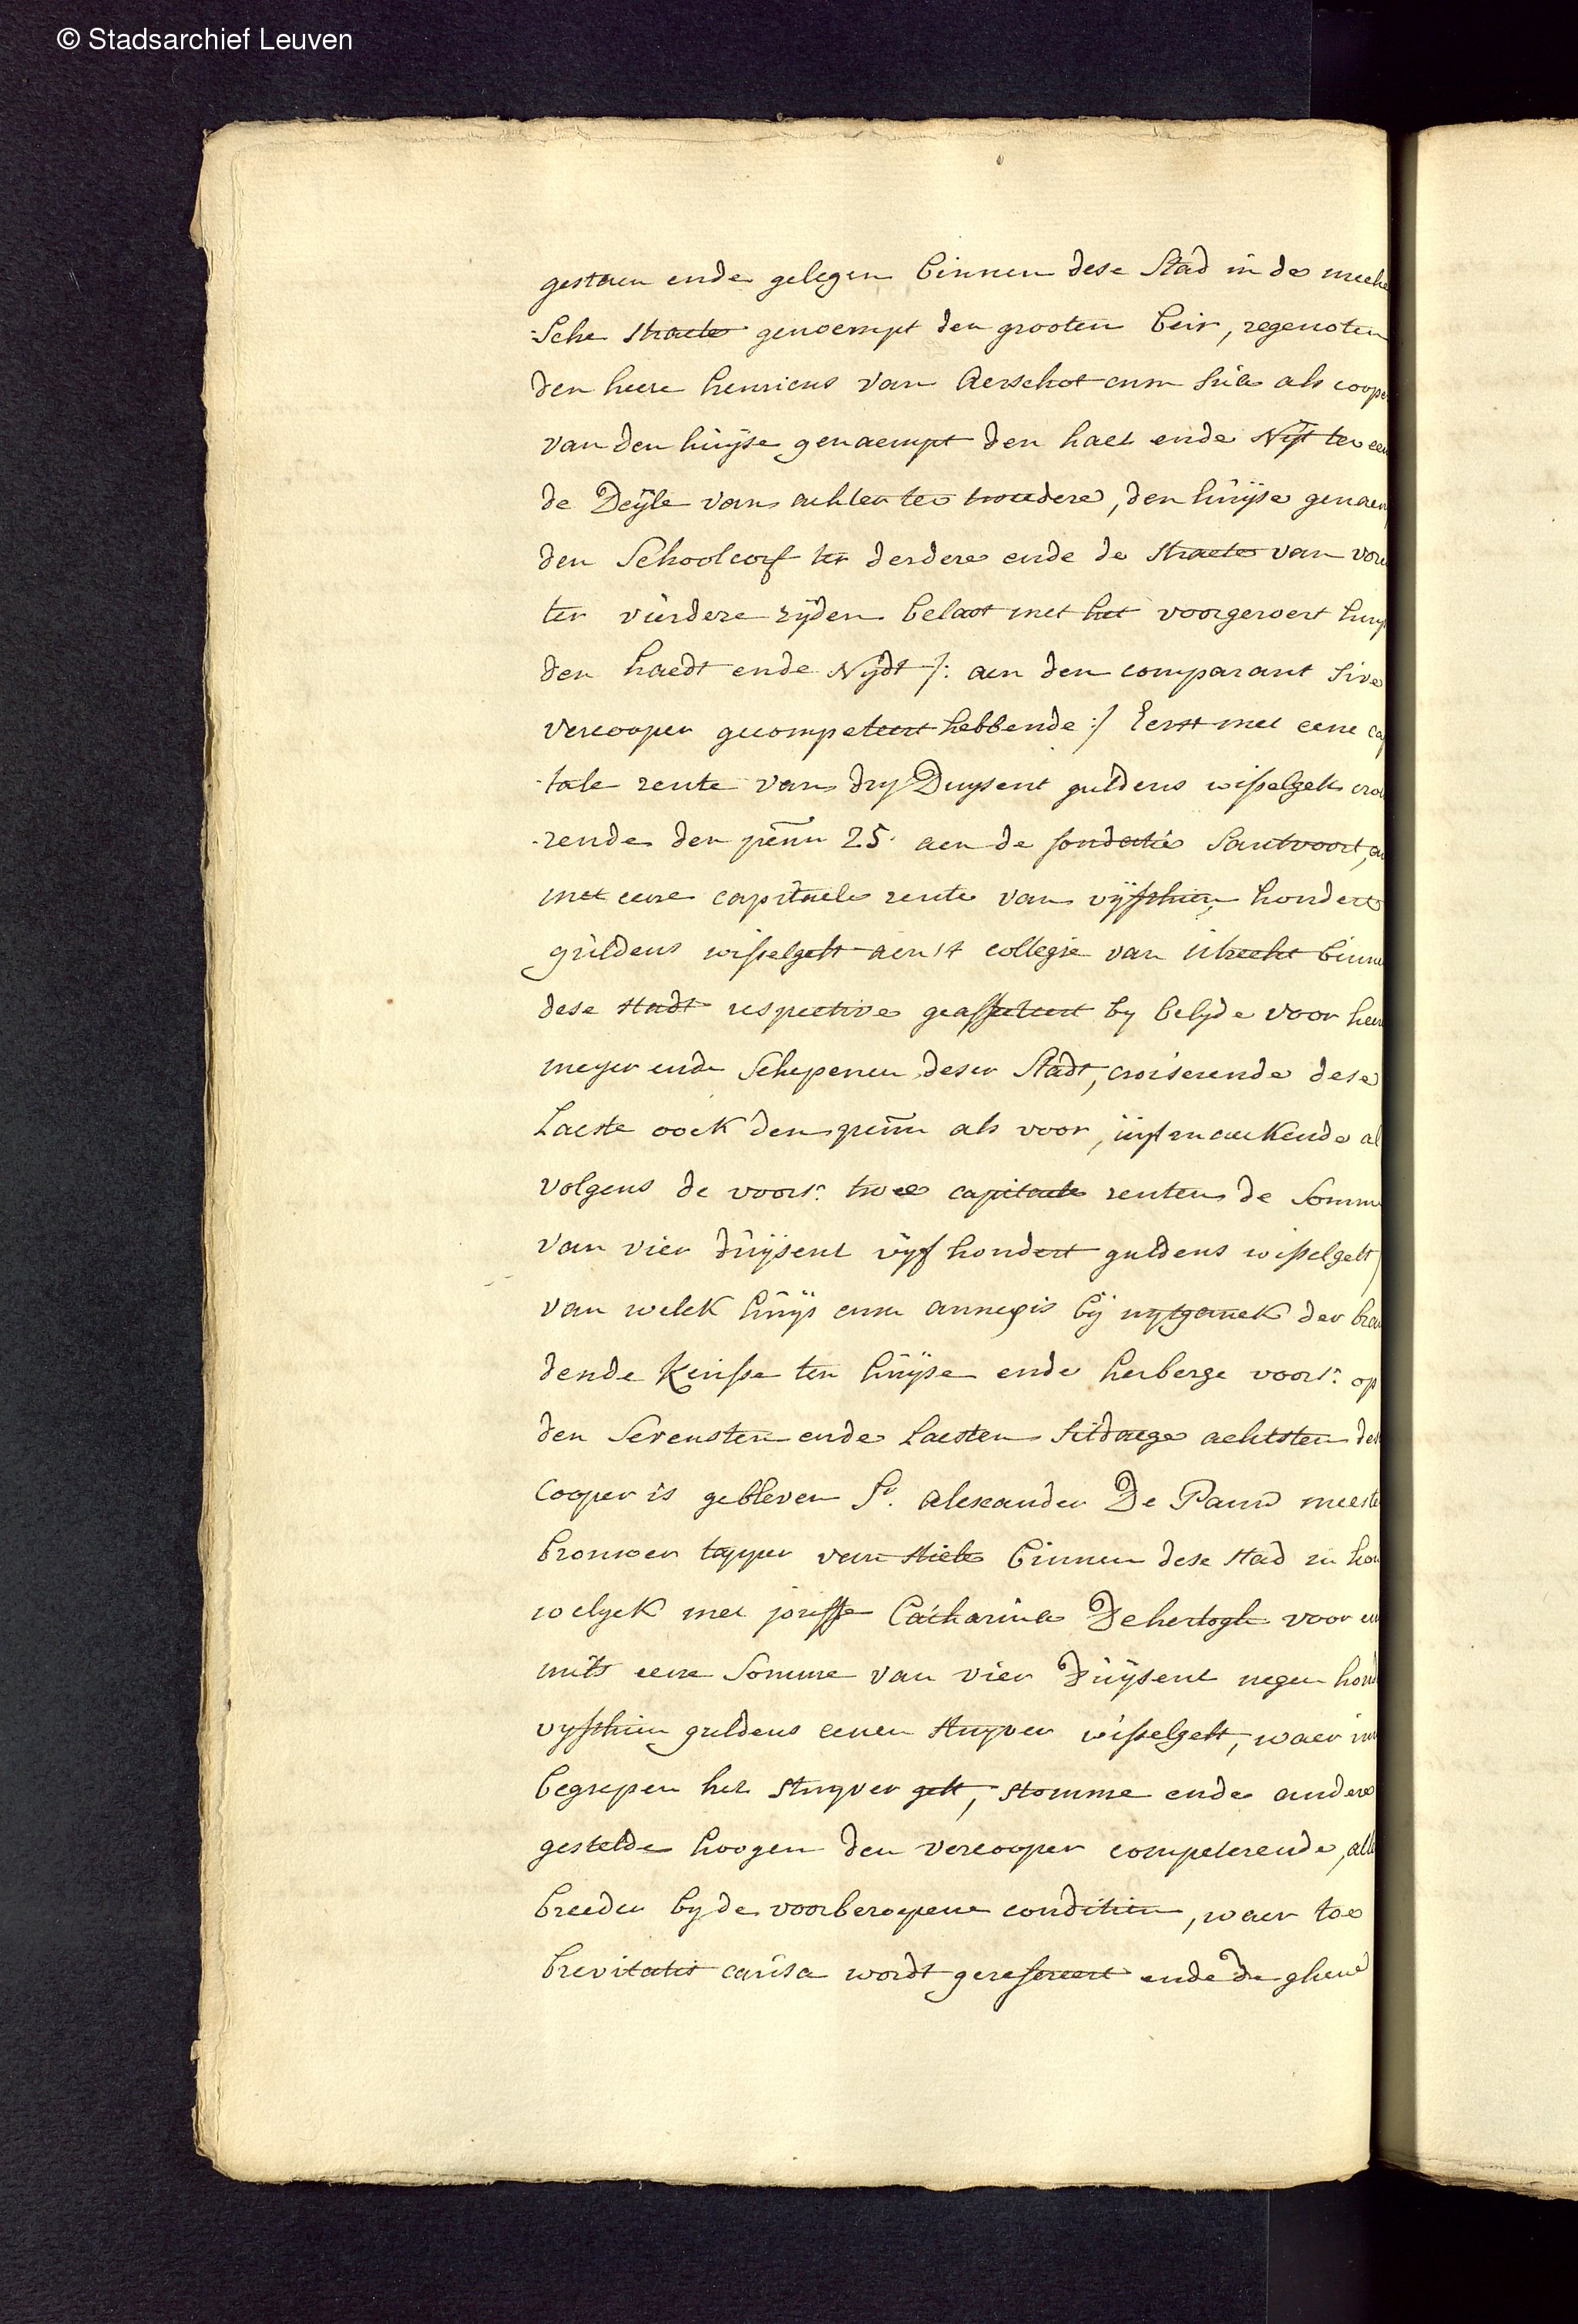 © Stadsarchief Leuven
gestaen ende gelegen binnen dese Stad in de meche
-sche straete genoempt den grooten beir, regenoten
den heere henricus van Aerschot cum suis als cooper
van den huÿse genaempt den haet ende Nyt ter een
de Deÿle van achter ter tweedere, den huÿse genaemp
den Schoolcorf ter derdere ende de straete van vore
ter vierdere zijden belast met het voorgeroert huys
den haedt ende Nÿdt /: aen den comparant sive
vercooper gecompeteert hebbende :/ Eerst met eene cap
-tale rente van dry Duysent guldens wisselgelt croi
-rende den penn 25. aen de fondatie Santvoort, en
met eene capitaele rente van vÿfthien hondert
guldens wisselgelt aen 't collegie van utrecht binnen
dese stadt respective geaffecteert by belyde voor heer
meyer ende Schepenen deser Stadt, croiserende dese
Laeste oock den penn als voor, uÿtmaekende al
volgens de voors: twee capitaele renten de Somme
van vier duÿsent vÿf hondert guldens wisselgelt,
van welck huÿs cum annexis bÿ uytganck der bran
dende keirsse ten huÿse ende herberge voors: op
den Sevensten ende Laesten sitdaege achtsten de
Cooper is gebleven Sr. Alexander De Pauw meeste
brouwer tapper van stiele binnen dese stad in hou
welyck met jouffe Catharina De hertogh voor en
mits eene Somme van vier Duÿsent negen hond
vyfthien guldens eenen stuyver wisselgelt, waer in
begrepen het stuyver gelt, stomme ende andere
gestelde hoogen den vercooper competerende, alle
breeder by de voorberoepene conditien, waer toe
brevitatis causa wordt gerefereert ende de ghene